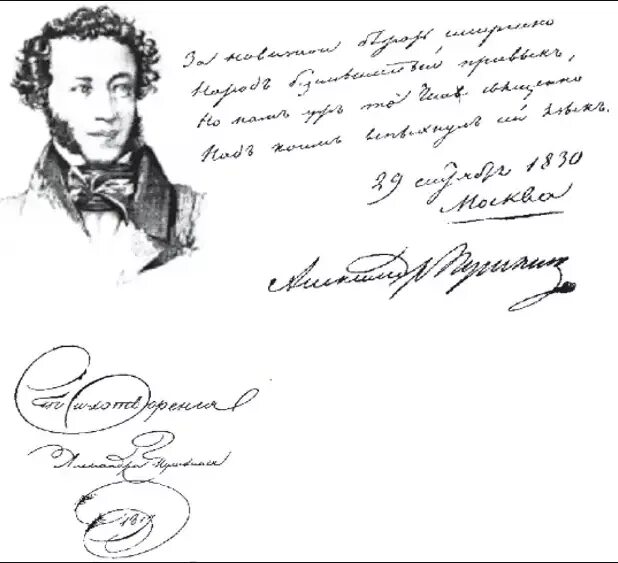 За новизной бежать смиренно
Народъ безсмысленный привыкъ,
Но намъ ужъ то чело священно
Надъ коимъ вспыхнулъ сей языкъ.
29 сентября 1830
Москва
Александр Пушкин
Стихотворения
Александра Пушкина
1817